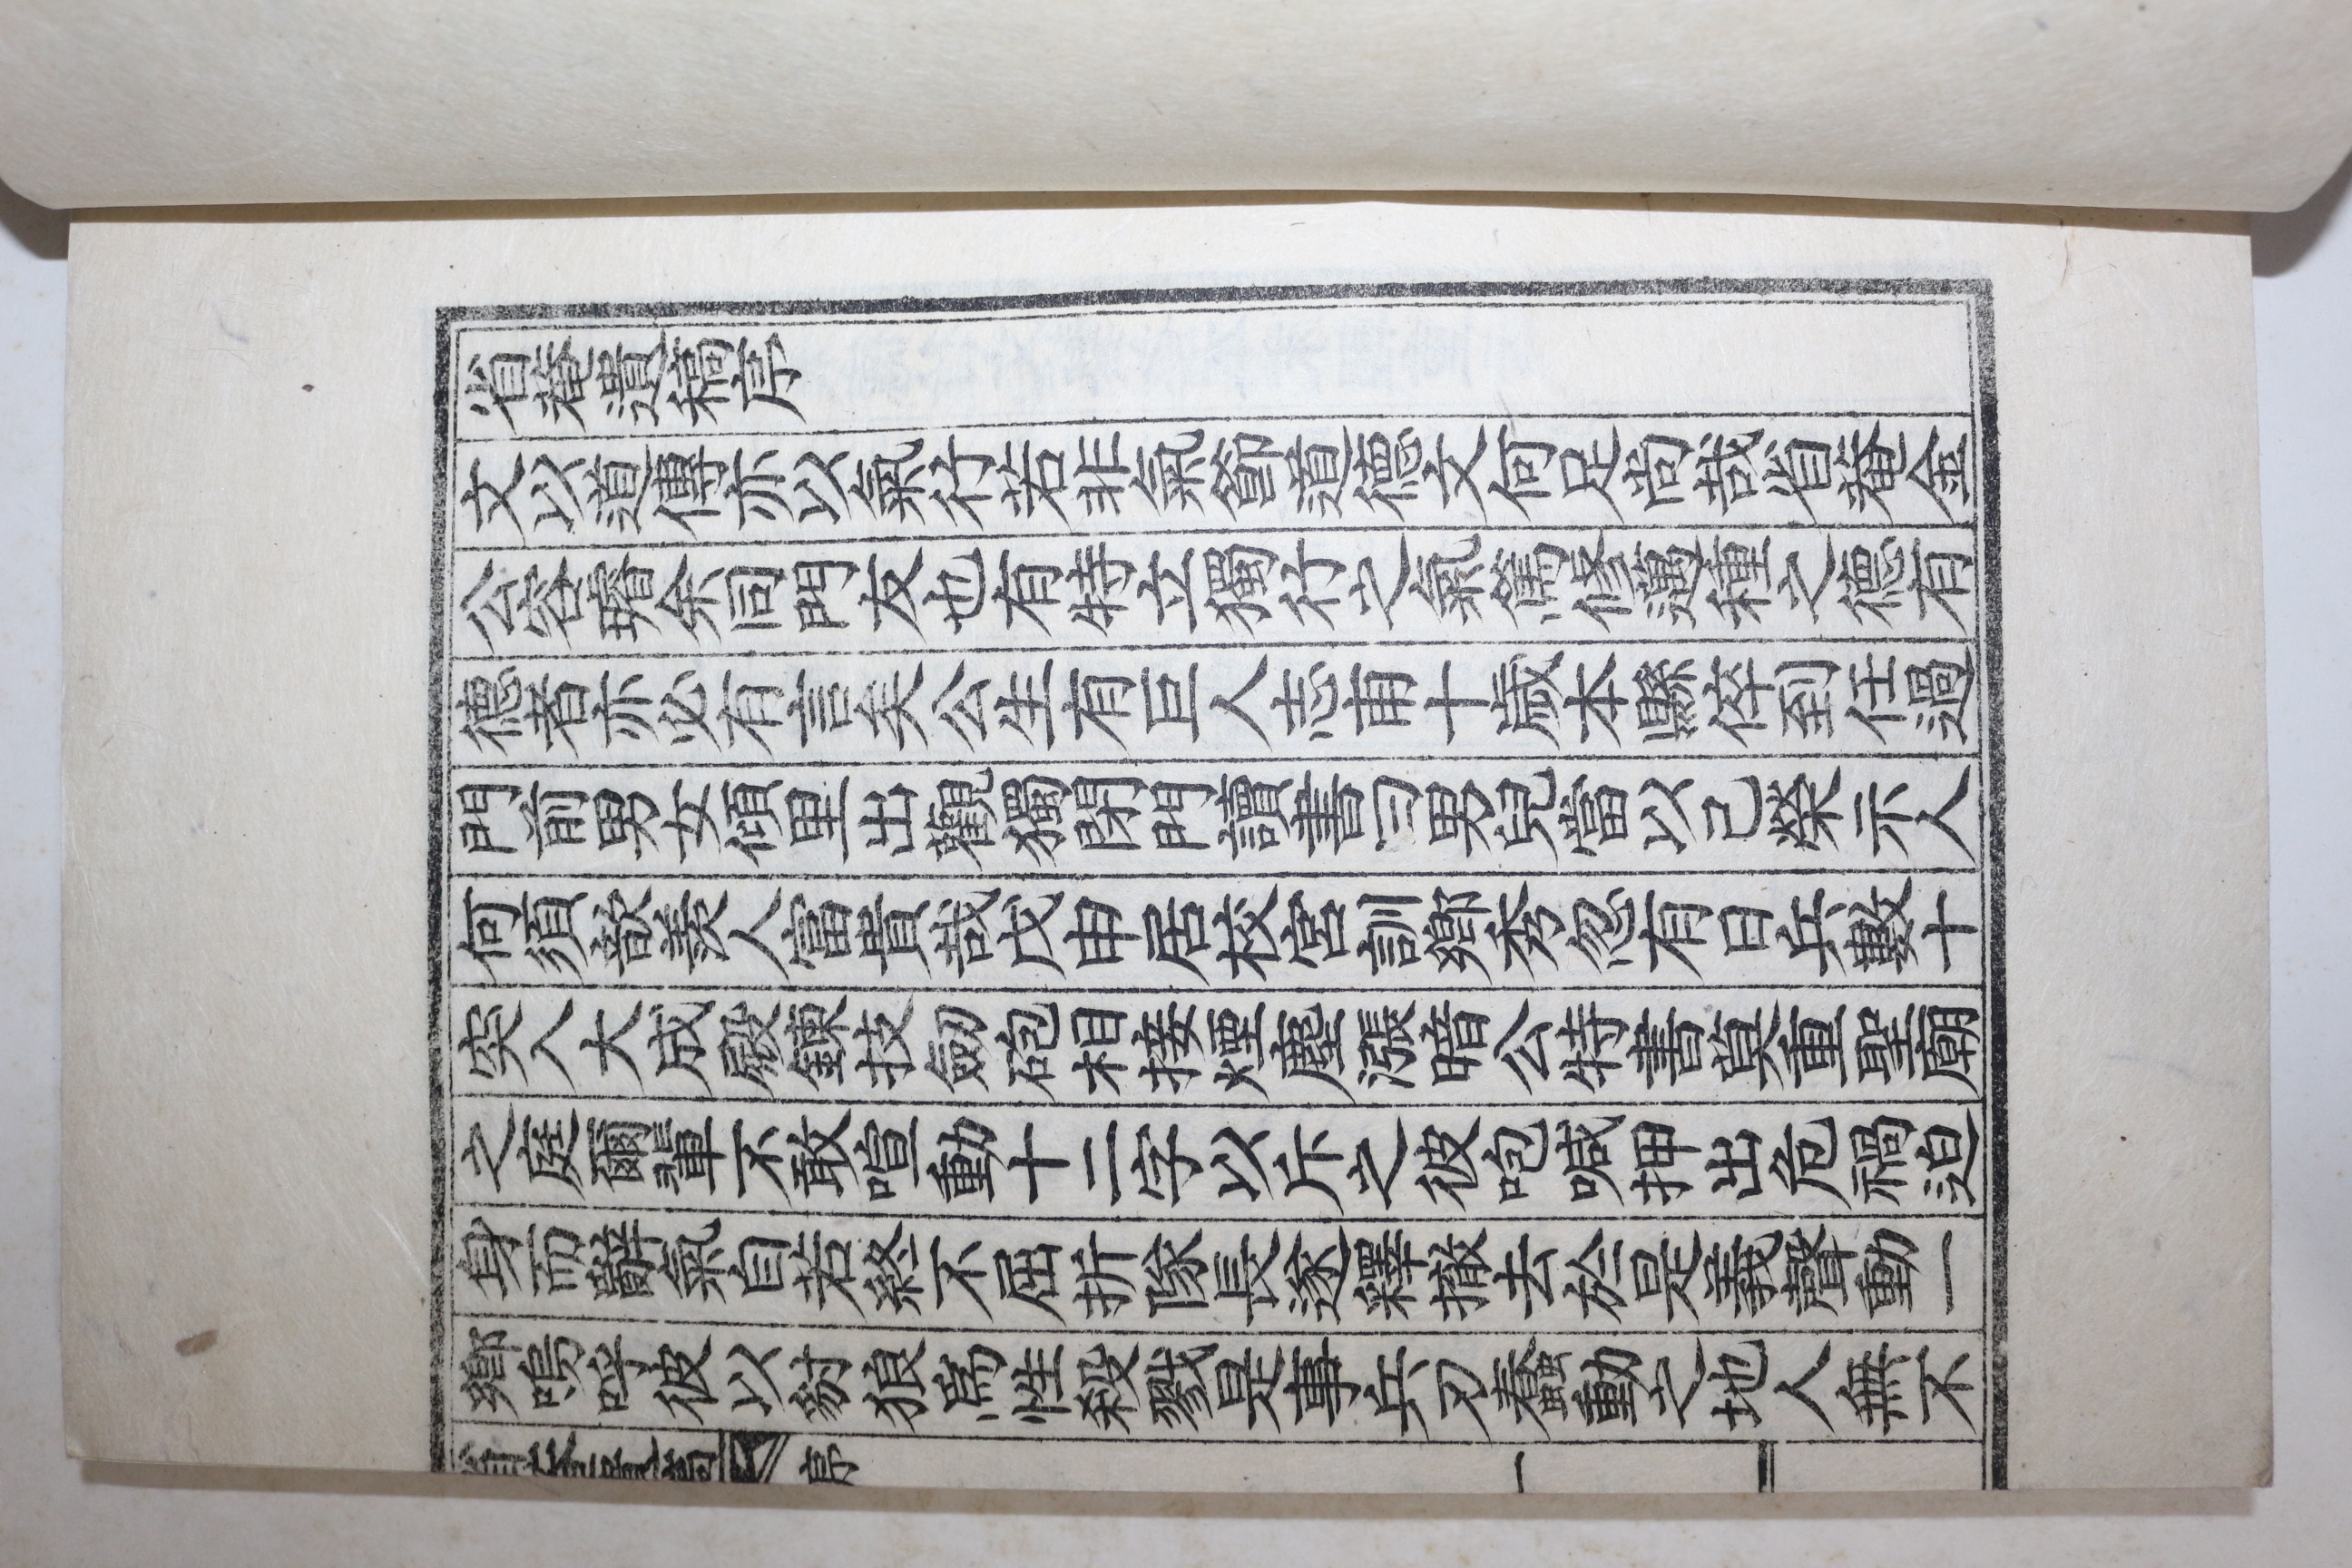 省菴遺稿序
文以道傳亦以氣行若非氣節道德文何足尚哉省菴金
公容璿余同門友也有特立獨行之氣篤修邁種之德有
德者亦必有言矣公生有巨人志甫十歲本縣倅到任過
門前男女傾里出觀獨閉門讀書曰男兒當以己榮示人
何須歆羨人富貴哉戊申居校宮訓鄉秀忽有日兵數十
突入大成殿鍊技劒砲相接煙塵漲暗公特書莫重聖廟
之庭爾輩不敢喧動十二字以斥之彼咆喊押出危禍迫
身而辭氣自若終不屈折隊長遂撤去於是義聲動一
鄉嗚呼彼以豺狼爲性殺戮是事兵刃蠢動之地人無不
省菴遺稿 序 一